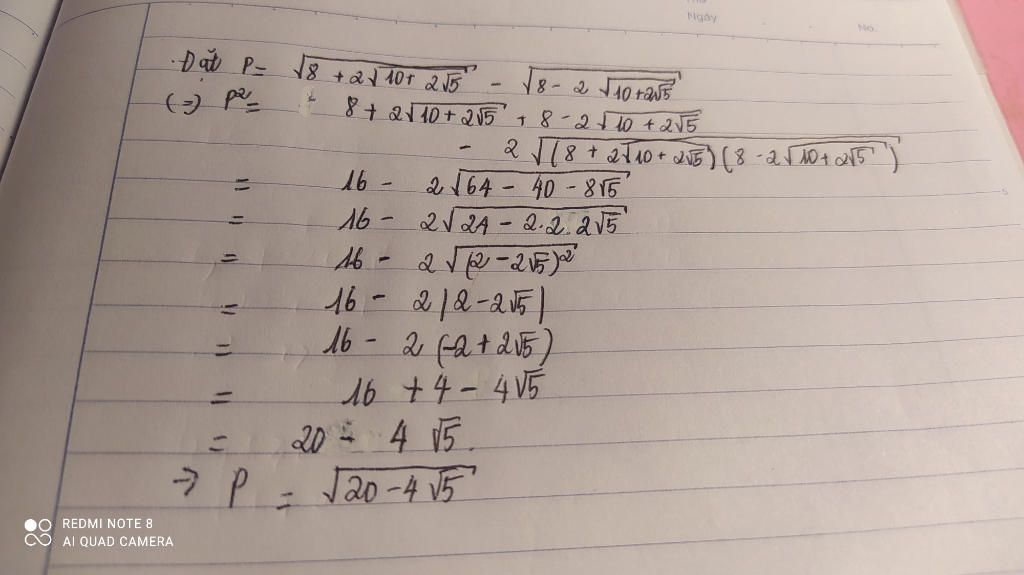 Ngày
No.
Đặt P = √(8 + 2√(10 + 2√5)) - √(8 - 2√(10 + 2√5))
(=) P² = 8 + 2√(10 + 2√5) + 8 - 2√(10 + 2√5)
- 2√((8 + 2√(10 + 2√5))(8 - 2√(10 + 2√5)))
= 16 - 2√(64 - 40 - 8√5)
= 16 - 2√(24 - 2.2.2√5)
= 16 - 2√((2 - 2√5)²)
= 16 - 2|2 - 2√5|
= 16 - 2(-2 + 2√5)
= 16 + 4 - 4√5
= 20 - 4√5.
=> P = √(20 - 4√5)
REDMI NOTE 8
AI QUAD CAMERA